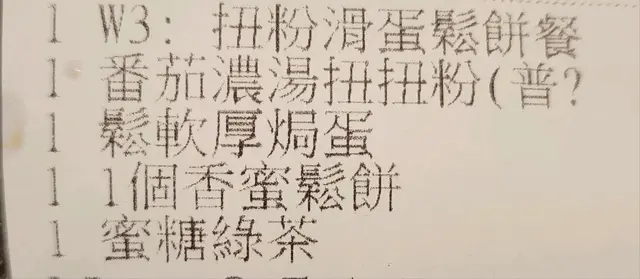 1 W3: 扭粉滑蛋鬆餅餐
1 番茄濃湯扭扭粉(普?
1 鬆軟厚焗蛋
1 1個香蜜鬆餅
1 蜜糖綠茶